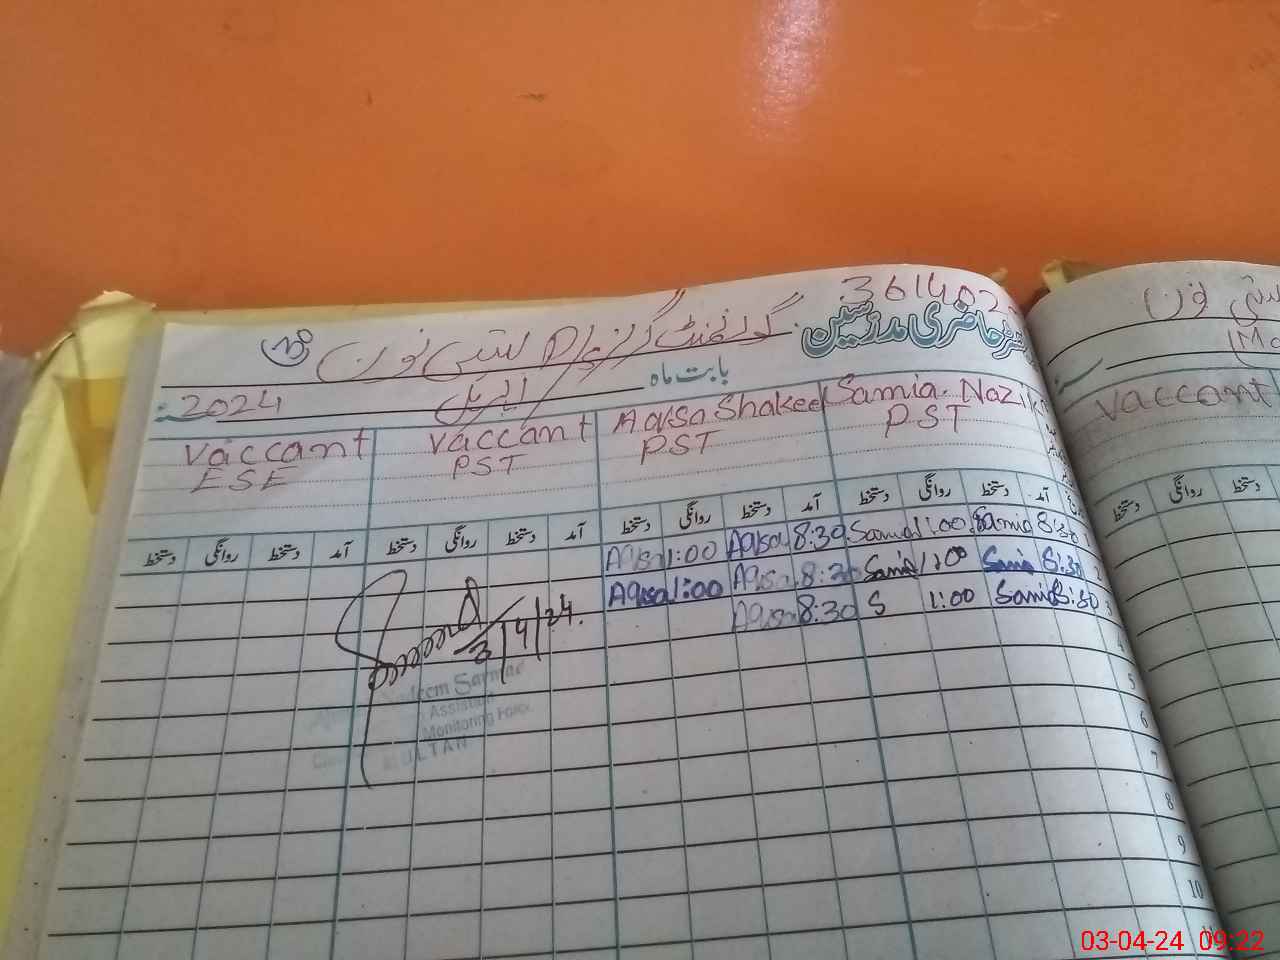 361402
رجسٹر حاضری مدرسین
گورنمنٹ گرلز P/S بستی نون
بابت ماہ اپریل 2024
Samia Nazi
PST
Aqsa Shakeel
PST
vaccant
PST
vaccant
ESE
آمد دستخط روانگی دستخط آمد دستخط روانگی دستخط آمد دستخط روانگی دستخط آمد دستخط روانگی دستخط
1 8:30 Samia 1:00 Samia 8:30 Aqsa 1:00 Aqsa
2 8:30 Samia 1:00 Samia 8:30 Aqsa 1:00 Aqsa
3 8:30 Samia 1:00 S 8:30 Aqsa
4
5
6
7
8
9
10
3/4/24.
Nadeem Sarwar
Assistant
Monitoring Force
MULTAN
نون
vaccant
دستخط روانگی دستخط
03-04-24 09:22